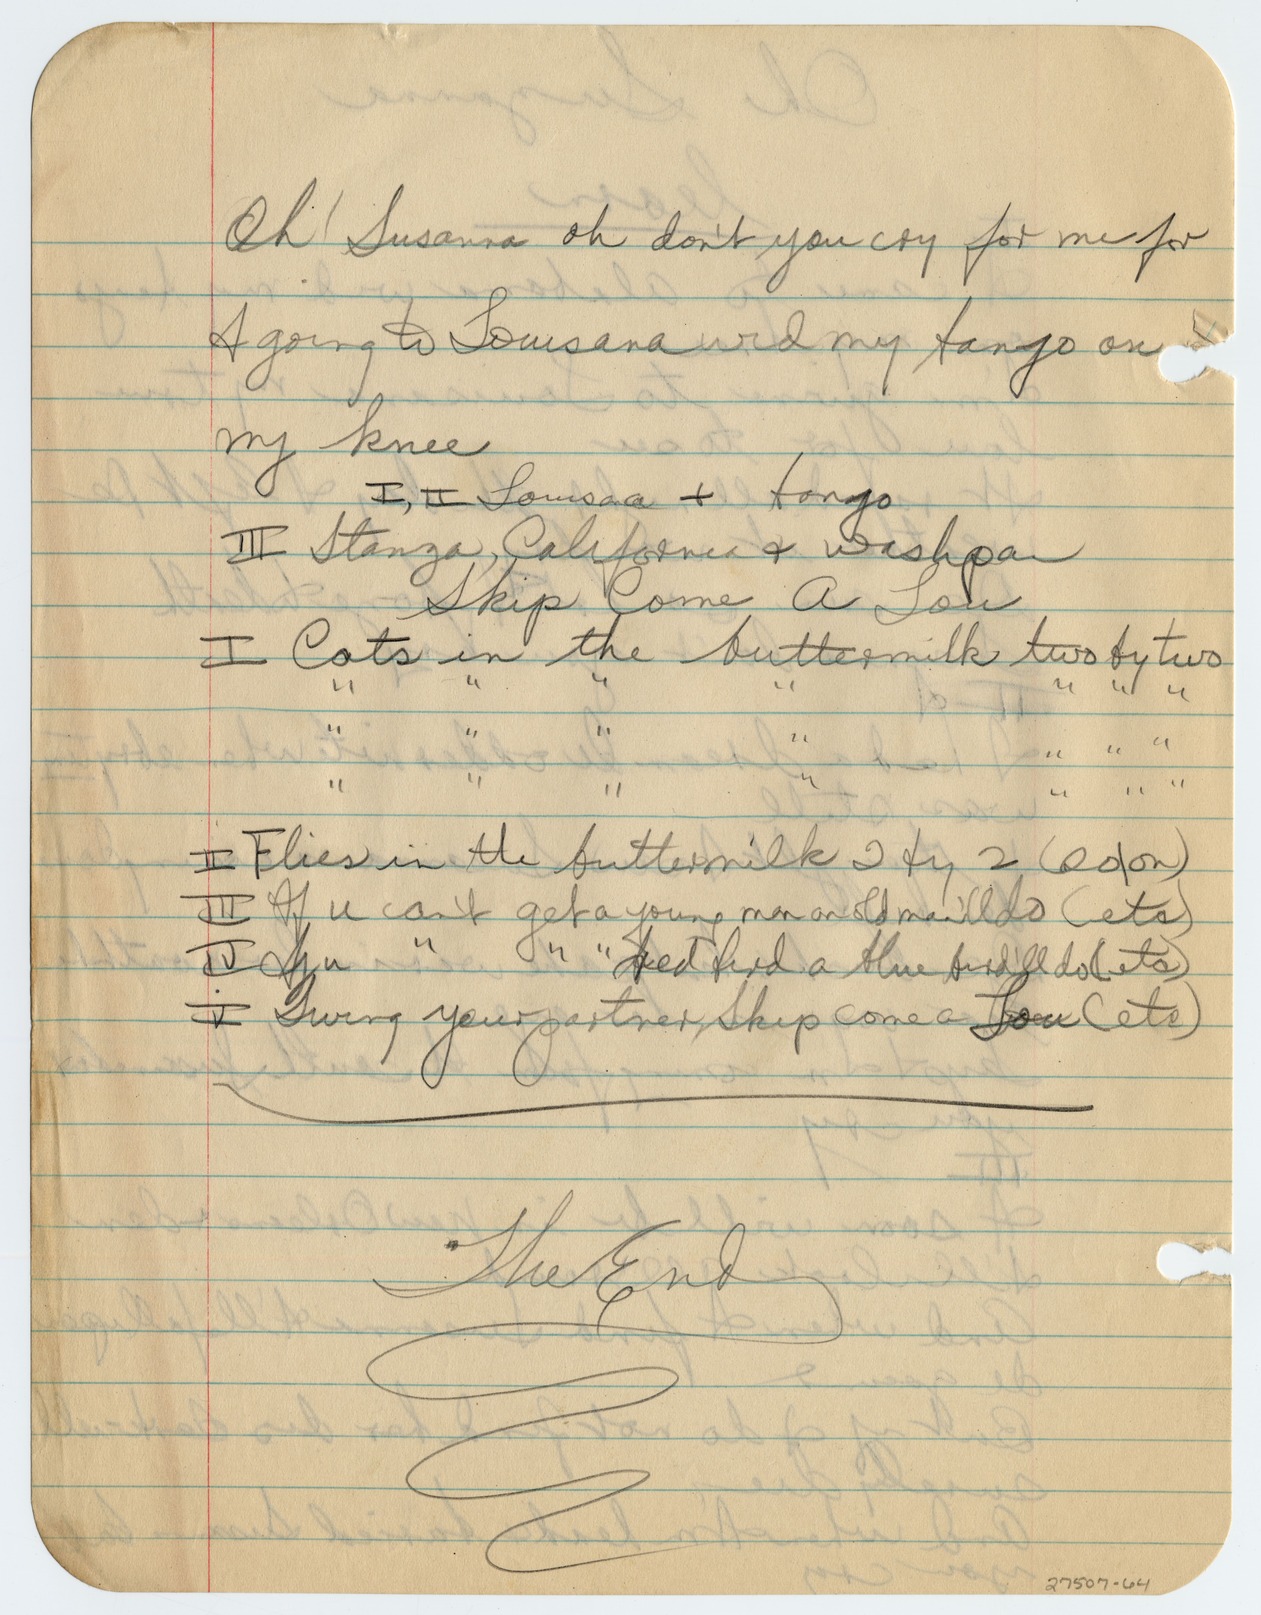 Oh! Susanna oh don't you cry for me for
I going to Louisana wid my tango on
my knee
I, II Louisaa + tango
III Stanza, California + washpan
Skip Come A Lou
I Cats in the buttermilk two by two
" " " " " " "
" " " " " " "
" " " " " " "
II Flies in the buttermilk 2 by 2
III If u can't get a young man an old man'll do (etc)
IV If u " " " red bird a blue bird'll do (etc)
V Swing your partner, skip come a Lou (etc)
The End
27507-64